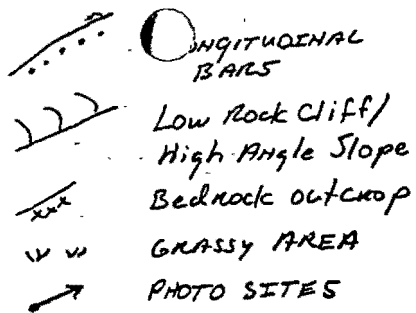 ONGITUDINAL
BARS
Low Rock Cliff/
High Angle Slope
Bedrock outcrop
GRASSY AREA
PHOTO SITES